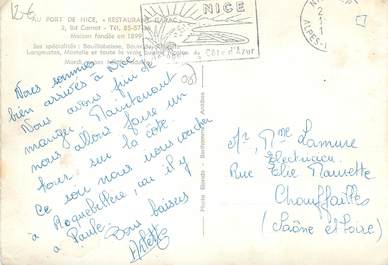 AU PORT DE NICE, « RESTAURANT GARAC »
2, Bd Carnot - Tél. 85-57
Maison fondée en 1899
Ses spécialités : Bouillabaisse,
Langoustes, Mostelle et toute la vraie
Mardi
NICE
Côte d'Azur
ALPES-M
Nous sommes
bien arrivés à Nice
Nous avons fini de
manger. Maintenant
nous allons faire un
tour sur la côte.
Ce soir nous nous coucher
à Roquebillère, car il y
a Paule.
Bons baisers
Arlette
Photo Bianda - Barthelemy - Antibes
Mr, Mme Lamure
Electricien
Rue Elie Maurette
Chauffailles
(Saône et Loire)